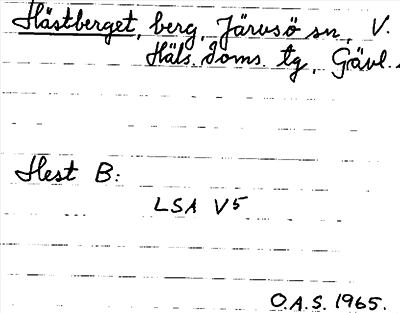 Hästberget, berg, Järvsö sn, V.
Häls. doms. tg, Gävl.
Hest B:
LSA V5
O.A.S. 1965.